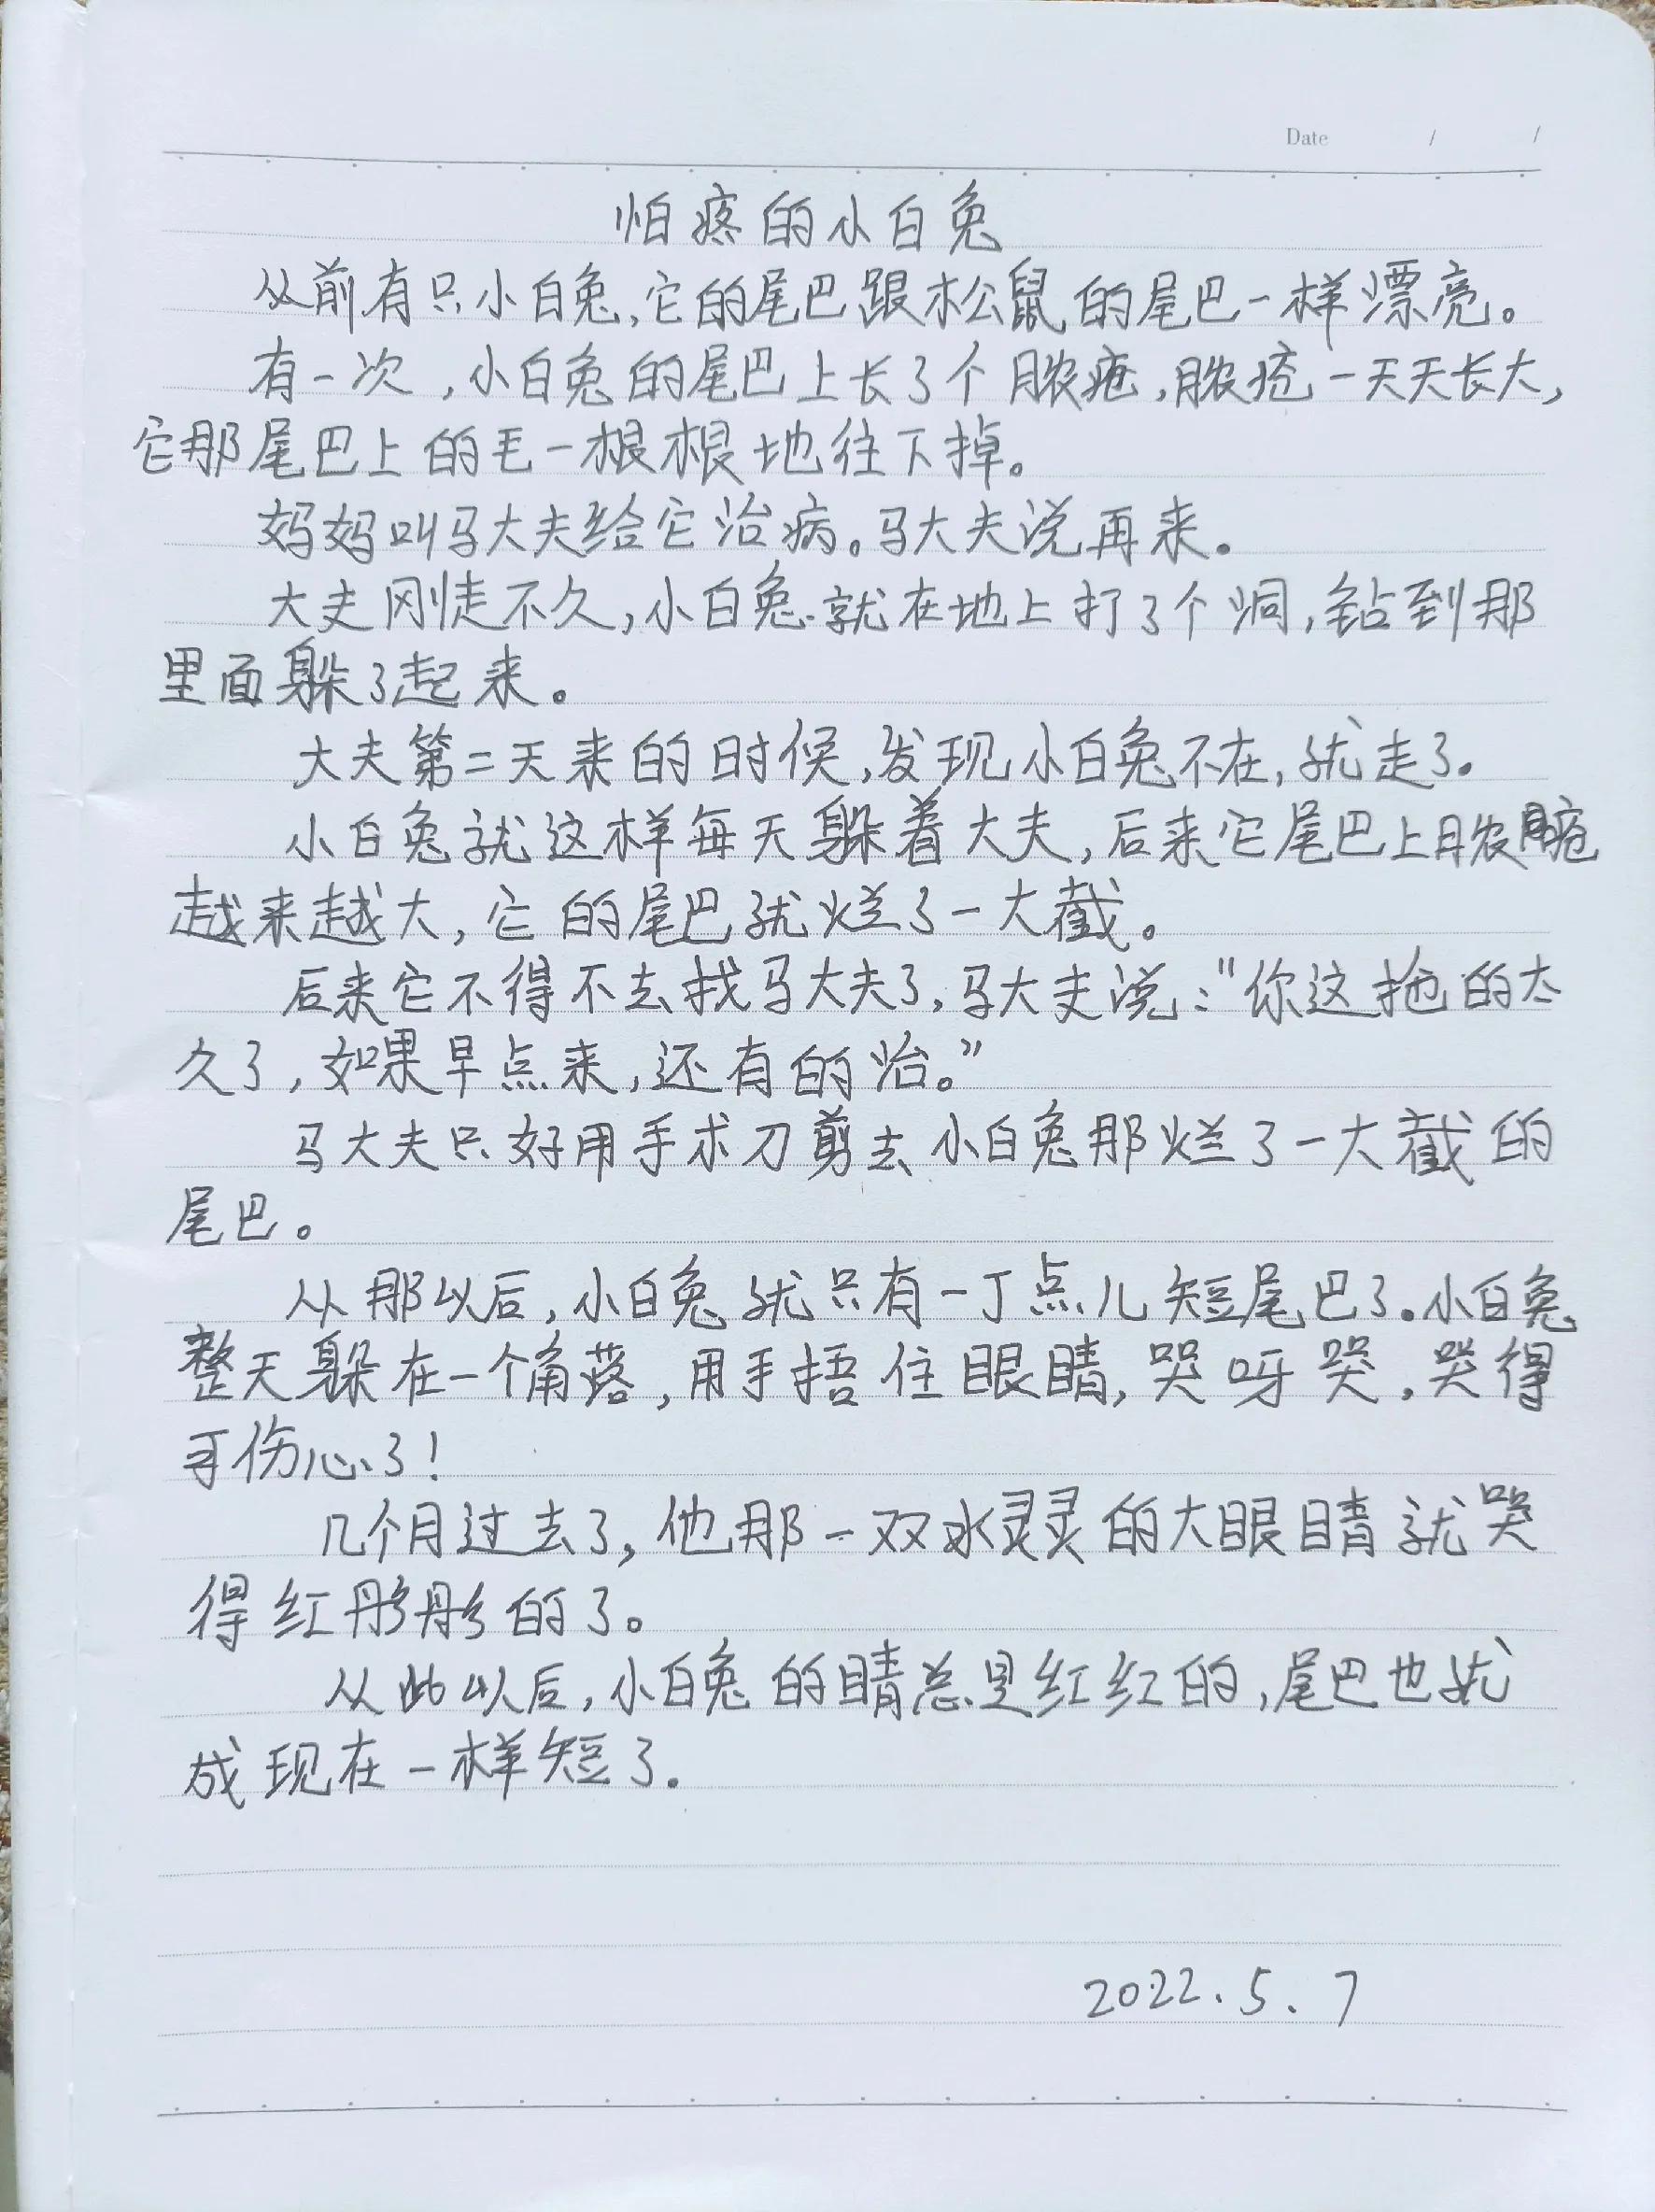 Date / /
怕疼的小白兔
从前有只小白兔,它的尾巴跟松鼠的尾巴一样漂亮。
有一次,小白兔的尾巴上长了个脓疮,脓疮一天天长大,
它那尾巴上的毛一根根地往下掉。
妈妈叫马大夫给它治病。马大夫说再来。
大夫刚走不久,小白兔就在地上打了个洞,钻到那
里面躲了起来。
大夫第二天来的时候,发现小白兔不在,就走了。
小白兔就这样每天躲着大夫,后来它尾巴上脓疮
越来越大,它的尾巴就烂了一大截。
后来它不得不去找马大夫了,马大夫说:"你这拖的太
久了,如果早点来,还有的治。"
马大夫只好用手术刀剪去小白兔那烂了一大截的
尾巴。
从那以后,小白兔就只有一丁点儿短尾巴了。小白兔
整天躲在一个角落,用手捂住眼睛,哭呀哭,哭得
可伤心了!
几个月过去了,他那一双水灵灵的大眼睛就哭
得红彤彤的了。
从此以后,小白兔的睛总是红红的,尾巴也就
成现在一样短了.
2022.5.7